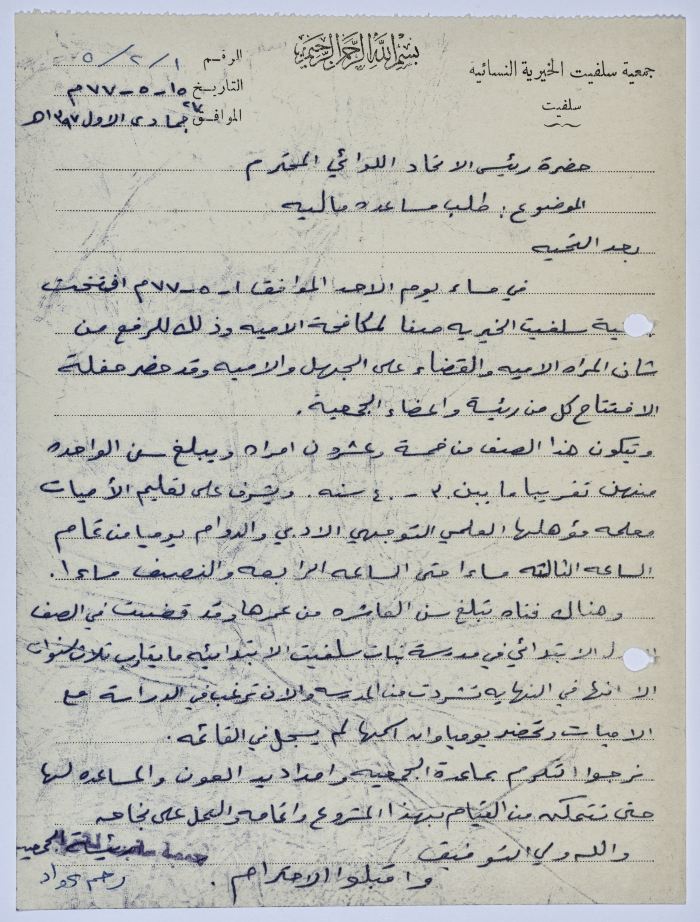 بسم الله الرحمن الرحيم
جمعية سلفيت الخيرية النسائية
سلفيت
الرقم ٥/٢/١
التاريخ ١٥-٥-٧٧م
الموافق ٢٧ جمادى الاول ١٣٩٧هـ
حضرة رئيس الاتحاد اللوائي المحترم
الموضوع: طلب مساعده ماليه
بعد التحيه
في مساء يوم الاحد الموافق ١-٥-٧٧م افتتحت
ية سلفيت الخيريه صفا لمكافحة الاميه وذلك للرفع من
شان المراه الاميه والقضاء على الجهل والاميه وقد حضر حفلة
الافتتاح كل من رئيسة واعضاء الجمعية.
ويتكون هذا الصف من خمسة وعشرون امراه ويبلغ سن الواحده
منهن تقريبا ما بين ٣٠ - ٤٠ سنه. ويشرف على تعليم الأميات
معلمه مؤهلها العلمي التوجيهي الادبي والدوام يوميا من تمام
الساعه الثالثه مساءا حتى الساعه الرابعه والنصف مساءا.
وهناك فتاه تبلغ سن العاشره من عمرها وقد قضيت في الصف
الابتدائي في مدرسة بنات سلفيت الابتدائيه ما يقارب ثلاث سنوات
الا انها في النهايه تشردت من المدرسه والان ترغب في الدراسة مع
الاميات وتحضر يوميا وان اسمها لم يسجل في القائمه.
نرجوا التكرم بمساعدة الجمعيه وامداد يد العون والمساعده لها
حتى نتمكن من القيام بهذا المشروع واتمامه والعمل على نجاحه
والله ولي التوفيق
واقبلوا الاحترام.